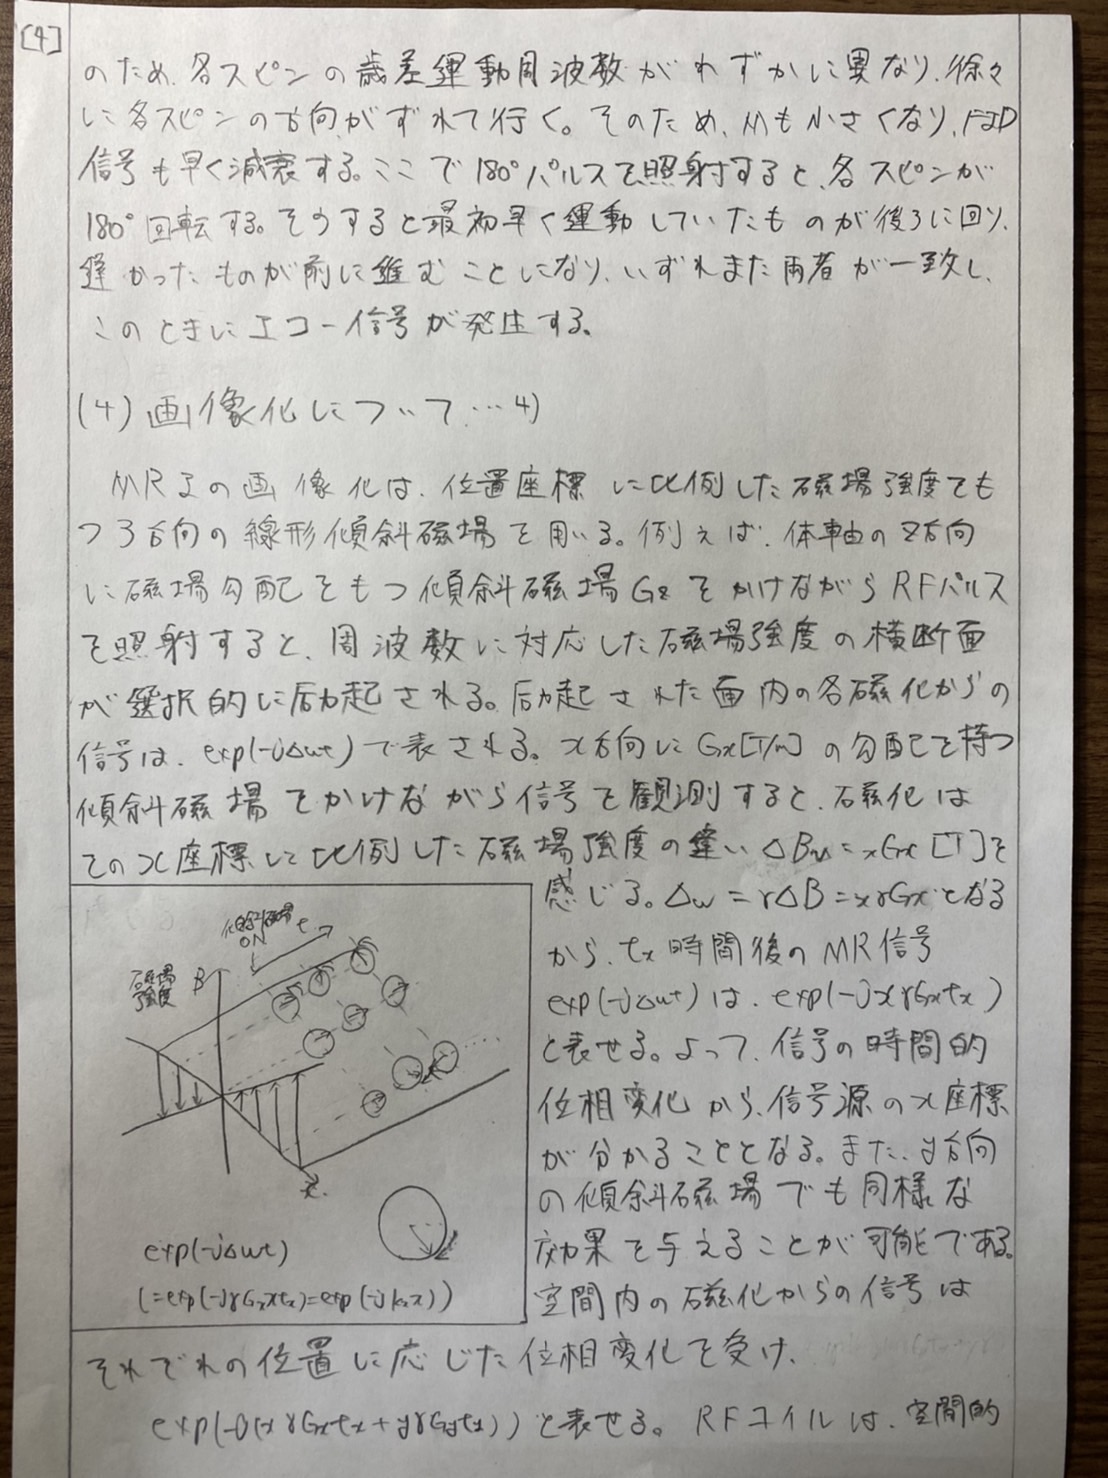 [4]
のため、各スピンの歳差運動周波数がわずかに異なり、徐々
に各スピンの方向がずれて行く。そのため、Mも小さくなり、FID
信号も早く減衰する。ここで180°パルスを照射すると、各スピンが
180°回転する。そうすると最初早く運動していたものが後ろに回り、
遅かったものが前に進むことになり、いずれまた両者が一致し、
このときにエコー信号が発生する。
(4)画像化について…4)
MRIの画像化は、位置座標に比例した磁場強度でも
つ3方向の線形傾斜磁場を用いる。例えば、体軸のz方向
に磁場勾配をもつ傾斜磁場Gzをかけながら RFパルス
を照射すると、周波数に対応した磁場強度の横断面
が選択的に励起される。励起された面内の各磁化からの
信号は、exp(-jΔωt)で表される。x方向にGx[T/m]の勾配を持つ
傾斜磁場をかけながら信号を観測すると、磁化は
そのx座標に比例した磁場強度の違いΔBx=xGx[T]を
感じる。Δω=γΔB=xγGxとなる
から、tx時間後のMR信号
exp(-jΔωt)は、exp(-jxγGxtx)
と表せる。よって、信号の時間的
位相変化から、信号源のx座標
が分かることとなる。また、y方向
の傾斜磁場でも同様な
効果を与えることが可能である。
空間内の磁化からの信号は
傾斜磁場
ON
t
磁場
強度
B
x
exp(-jΔωt)
(=exp(-jγGxxtx)=exp(-jkxx))
それぞれの位置に応じた位相変化を受け、
exp(-j(xγGxtx+yγGyty))と表せる。 RFコイルは、空間的